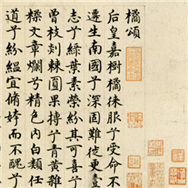 橘頌
后皇嘉樹橘徠服兮受命不
遷生南國兮深固難徙更壹
志兮綠葉素榮紛其可喜兮
曾枝剡棘圓果摶兮青黃雜
糅文章爛兮精色內白類任
道兮紛緼宜脩姱而不醜兮